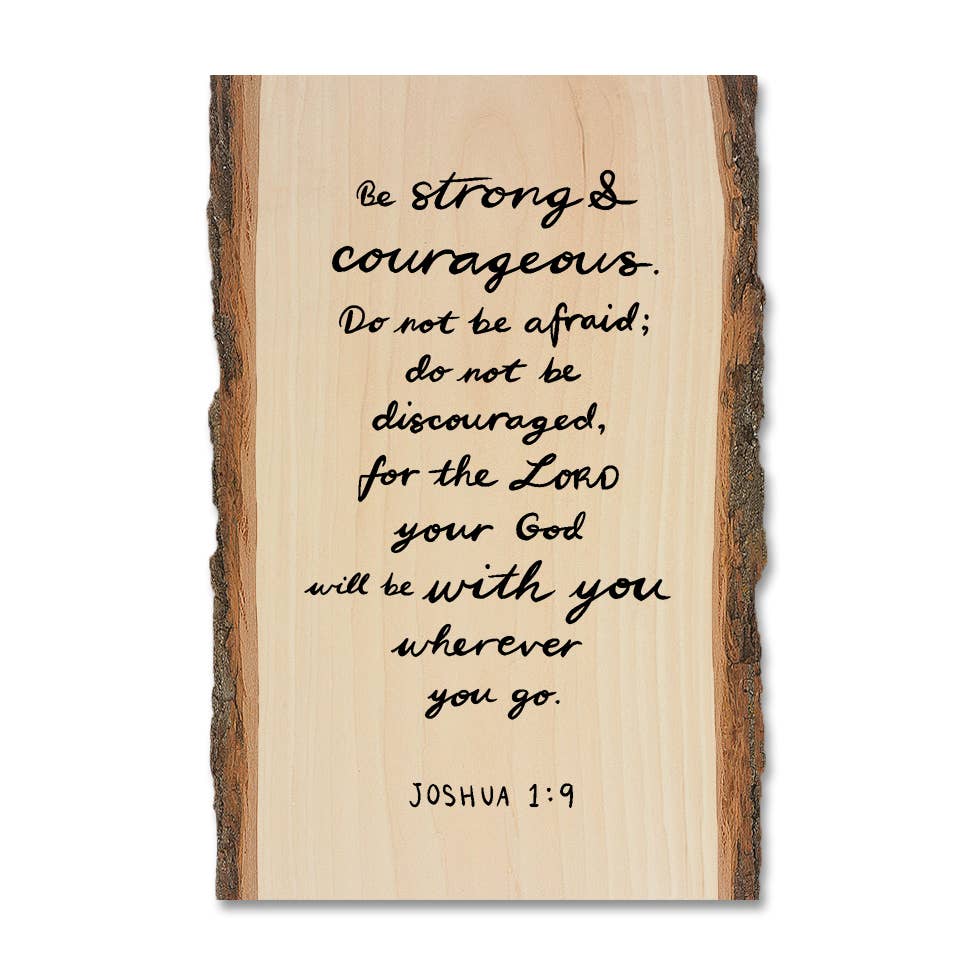 Be strong &
courageous.
Do not be afraid;
do not be
discouraged,
for the LORD
your God
will be with you
wherever
you go.
JOSHUA 1:9